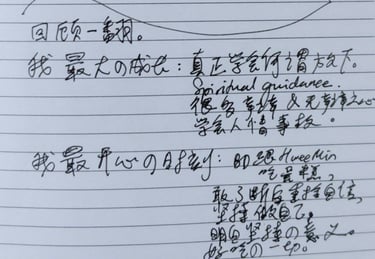 回顾一翻。
我最大の成长：真正学会何谓放下。
Spiritual guidance.
很多 & 无
学会人情事故。
我最开心の时刻：即 HueeMin
吃
敢了断后重拾自信，
坚持做自己，
明白坚持の意义。
好吃の一切。